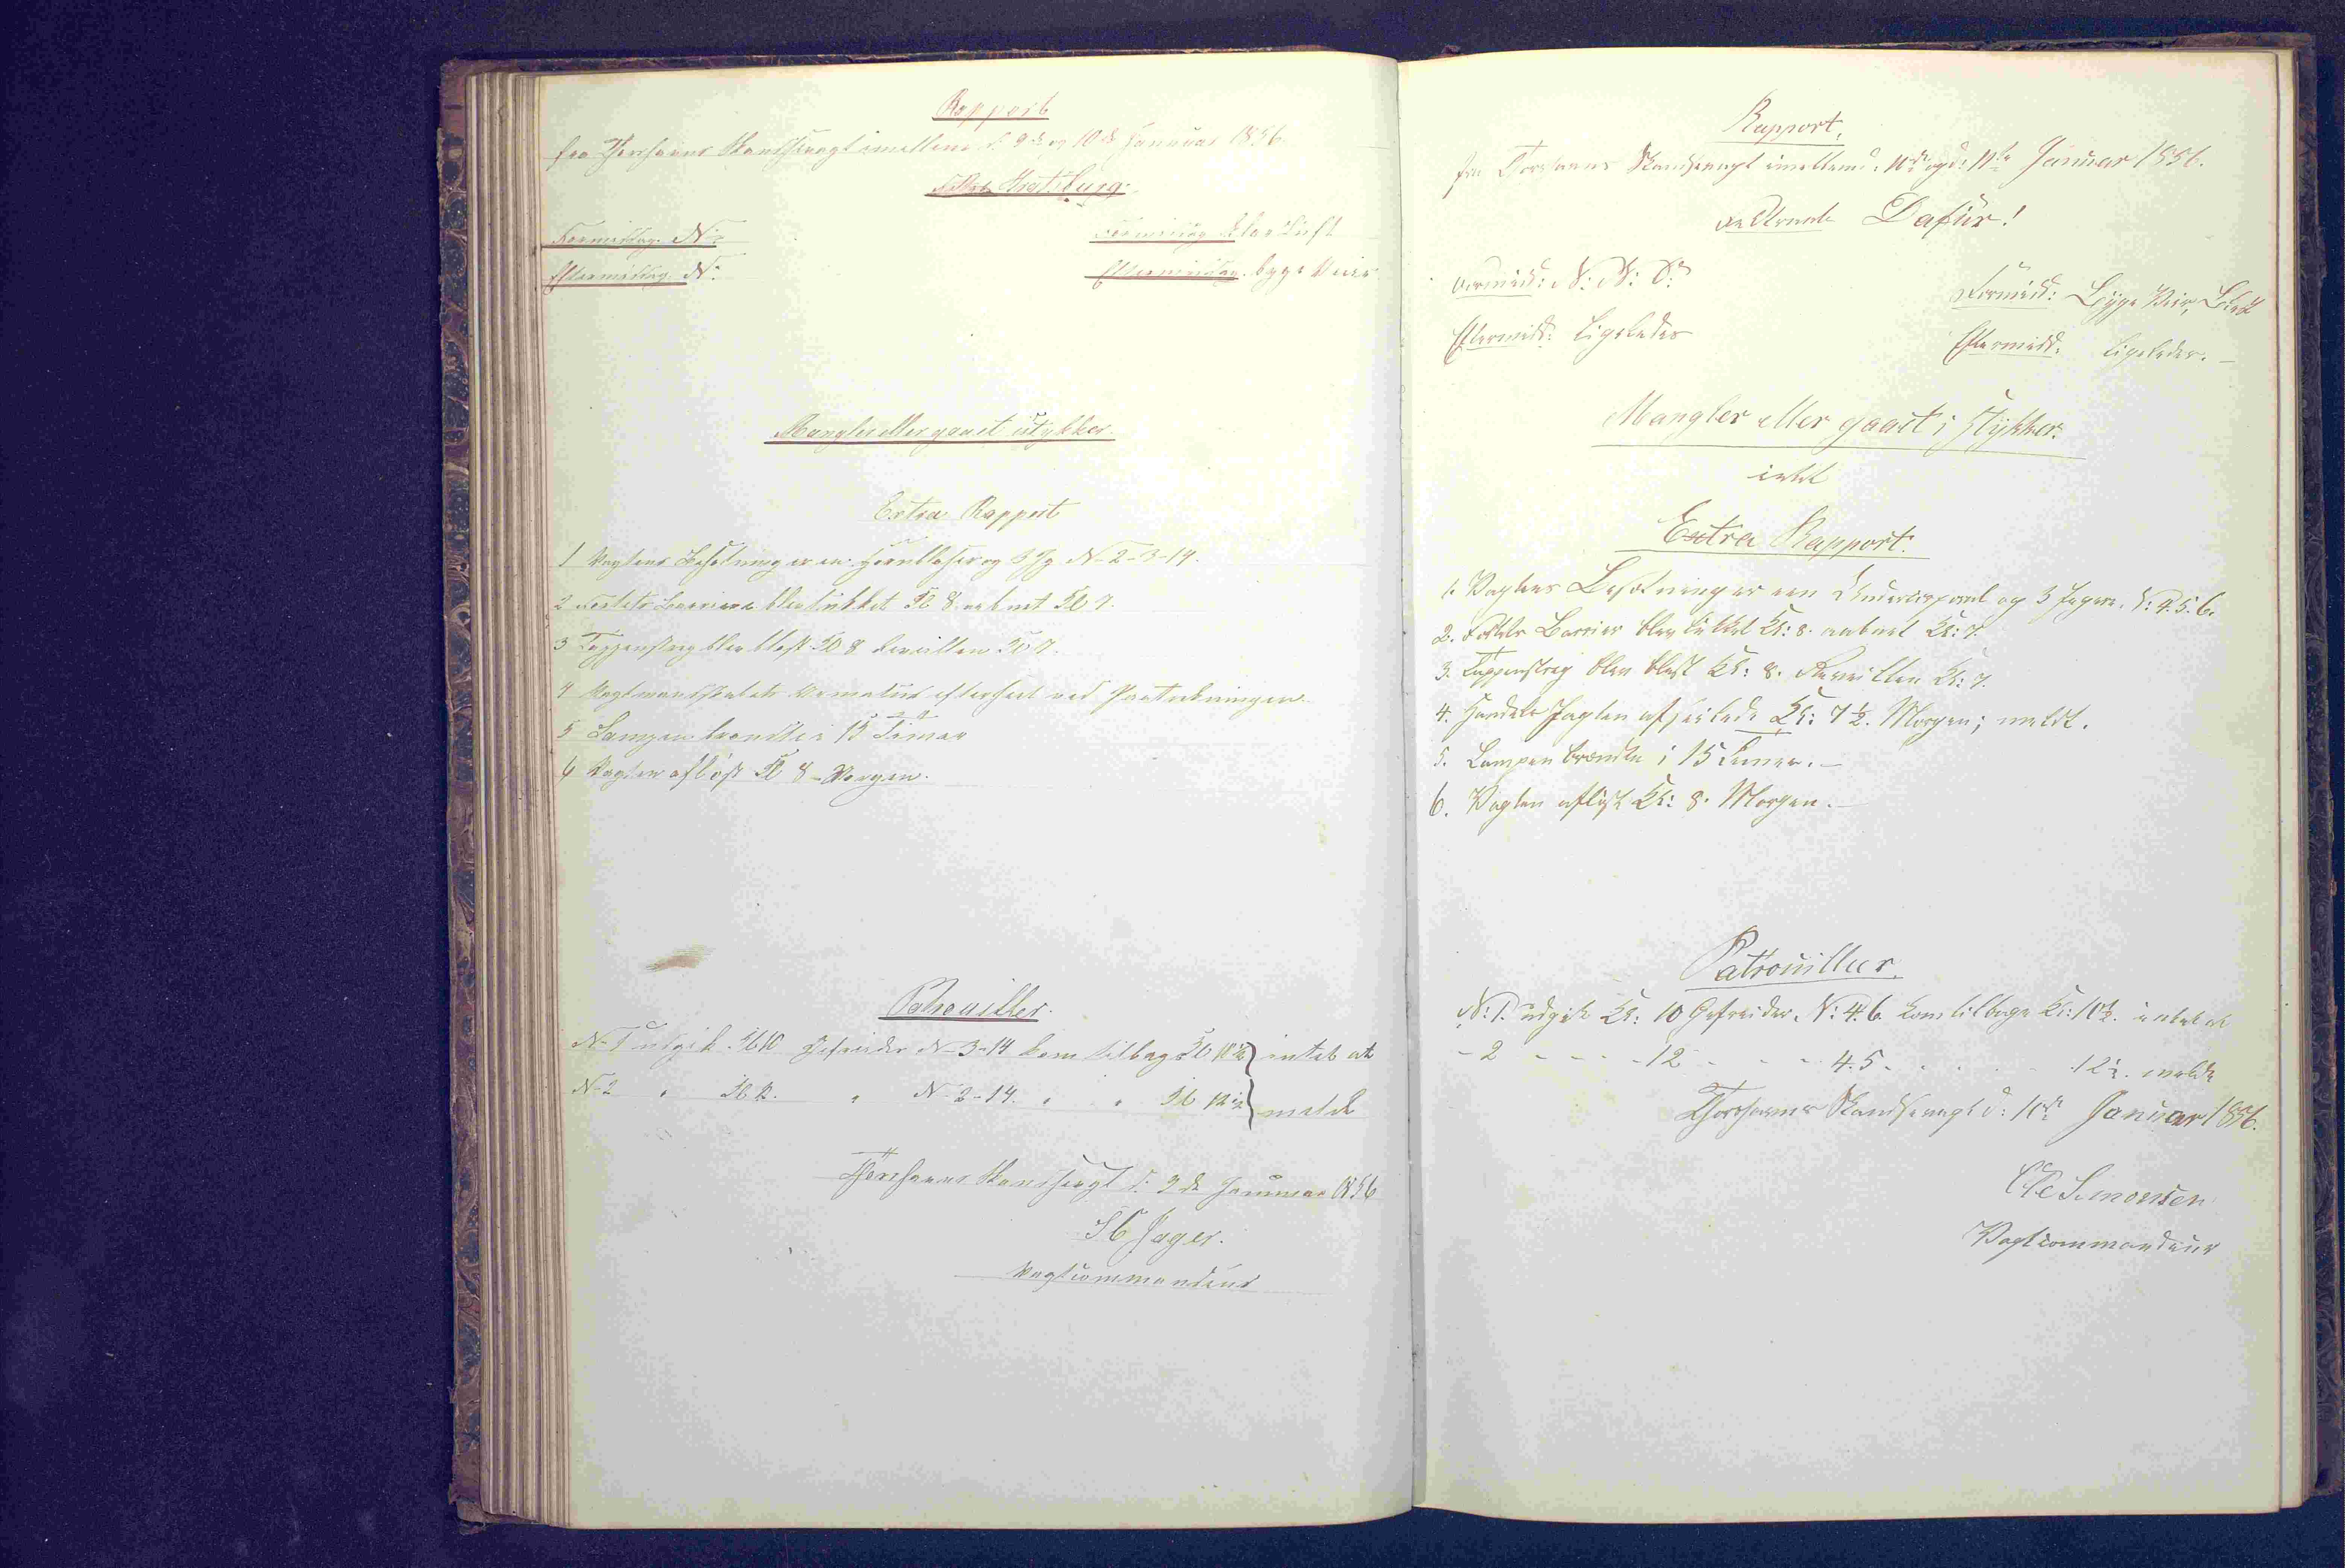 Rapport
fra Thorshavns Skandsevagt imellem d. 9de og 10de Januar 1856.
Feltraab Aratsburg.
Formiddag N:
Eftermiddag N:
Formiddag klar Luft
Eftermiddag byge Veir
Mangler eller gaaet istykker.
Extra Rapport
1 Vagtens Besætning er en Hornblæser og 3 Jg N-2-3-14.
2 Fortets Barriere blev lukket Kl 8 aabnet Kl 7.
3 Tappenstreg blev blæst Kl 8 Reveillen Kl 7.
4 Vagtmandskabets Armatur efterseet ved Paatrædningen.
5 Lampen brændte i 15 Timer
6 Vagten afløst Kl 8 Morgen.
Patrouiller.
N-1 udgik Kl 10 Gefreider N-3-14 kom tilbage Kl 10½ intet at
N-2 " Kl 12. " N-2-14. " " Kl 12½ melde
Thorshavns Skandsevagt d. 9de Januar 1856
Jager.
Vagtcommandeur
Rapport.
fra Thorshavns Skandsevagt imellem d. 10de og d. 11te Januar 1856.
Feltraab Dafür!
Formidd: N: N: O:
Eftermidd: Ligeledes
Formidd: Byge Veir, Blæst
Eftermidd: ligeledes. –
Mangler eller gaaet i Stykker.
intet
Extra Rapport.
1. Vagtens Besætning er een Undercorporal og 3 Jægere. N: 4. 5. 6.
2. Fortets Barrier blev lukket Kl: 8. aabnet Kl: 7.
3. Tappenstreg blev blæst Kl: 8. Reveillen Kl: 7.
4. Handels Jagten afseilede Kl: 7½. Morgen; meldt.
5. Lampen brændte i 15 Timer. –
6. Vagten afløst Kl: 8. Morgen. –
Patrouiller.
N: 1. udgik Kl: 10 Gefreider N: 4. 6. kom tilbage Kl: 10½. intet at
- 2 - - - - 12 - - - 4. 5. - - - - 12½. melde
Thorshavns Skandsevagt d: 10de Januar 1856.
Simonsen
Vagtcommandeur